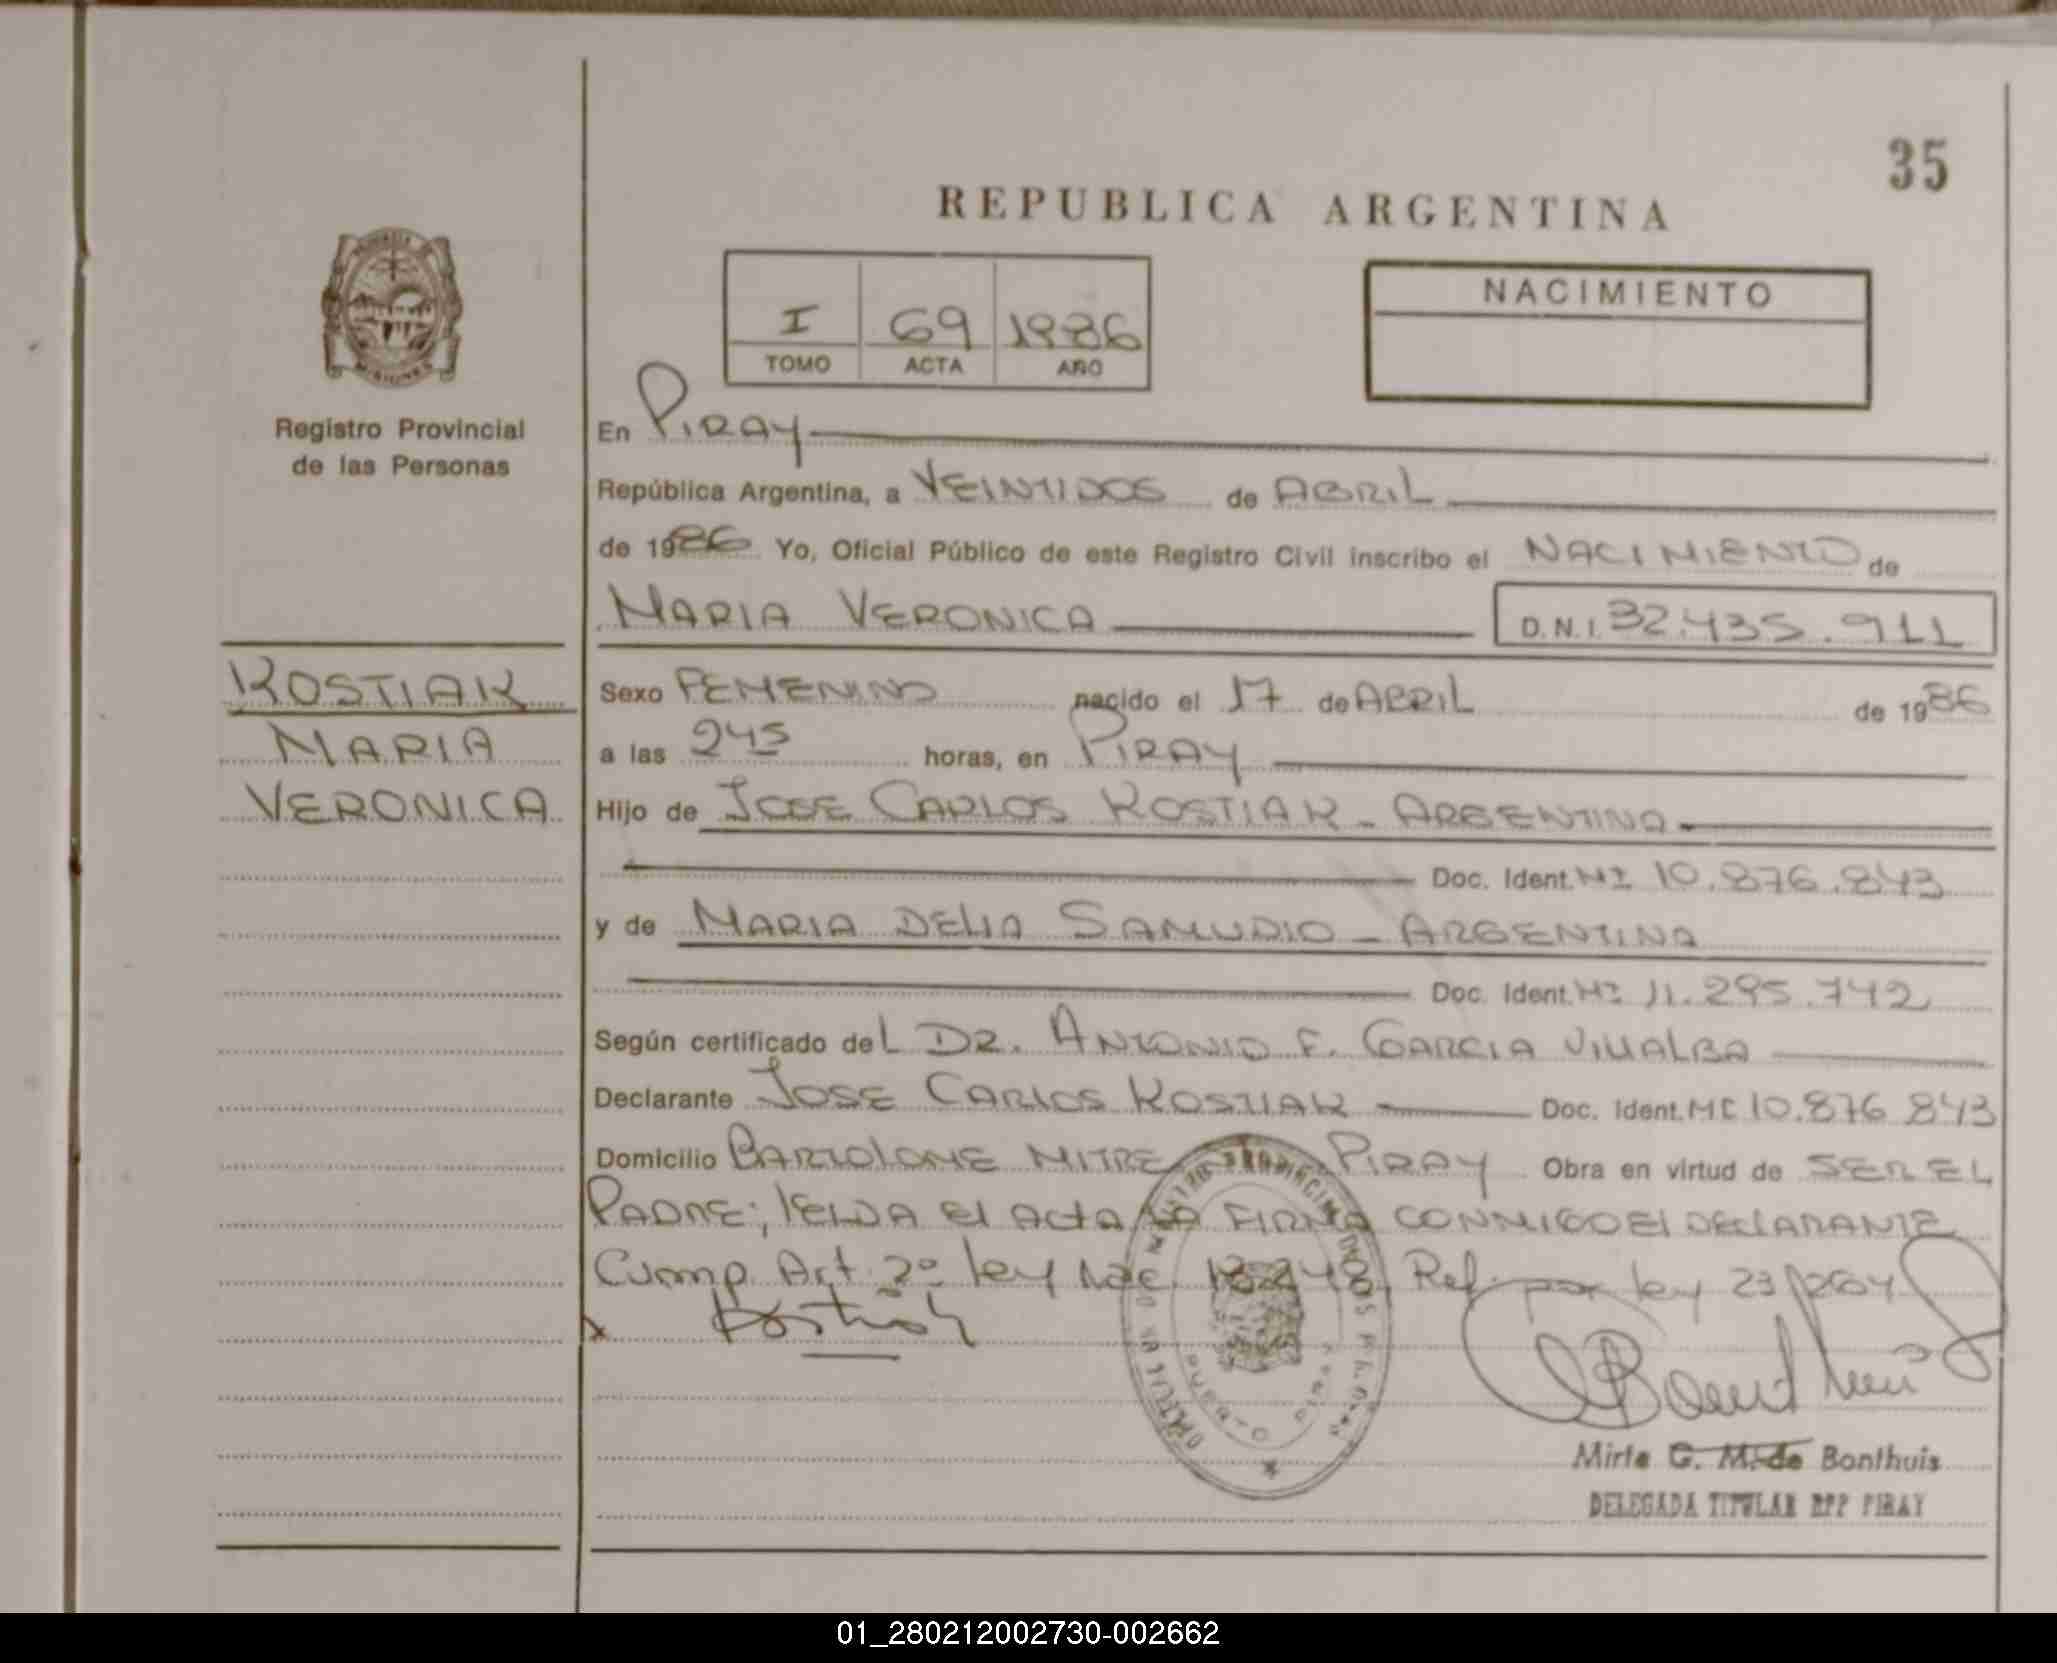 35
REPUBLICA ARGENTINA
I 69 1986
TOMO ACTA AÑO
NACIMIENTO
MISIONES
Registro Provincial
de las Personas
KOSTIAK
MARIA
VERONICA
En PIRAY
República Argentina, a VEINTIDOS de ABRIL
de 1986 Yo, Oficial Público de este Registro Civil inscribo el NACIMIENTO de
MARIA VERONICA D.N.I. 32.435.911
Sexo FEMENINO nacido el 17 de ABRIL de 1986
a las 245 horas, en PIRAY
Hijo de JOSE CARLOS KOSTIAK - ARGENTINO
Doc. Ident. MI 10.876.843
y de MARIA DELIA SAMUDIO - ARGENTINA
Doc. Ident. MI 11.295.742
Según certificado del DR. ANTONIO F. GARCIA VILLALBA
Declarante JOSE CARLOS KOSTIAK Doc. Ident. MI 10.876.843
Domicilio BARTOLOME MITRE PIRAY Obra en virtud de SER EL
PADRE; LEIDA El ACTA LA FIRMA CONMIGO El DECLARANTE
Cump. Art. 2º ley Nac. 18.248 Ref. por ley 23/264
x Kostiak
PUERTO PIRAY
Mirta G. M. de Bonthuis
DELEGADA TITULAR RPP PIRAY
01_280212002730-002662